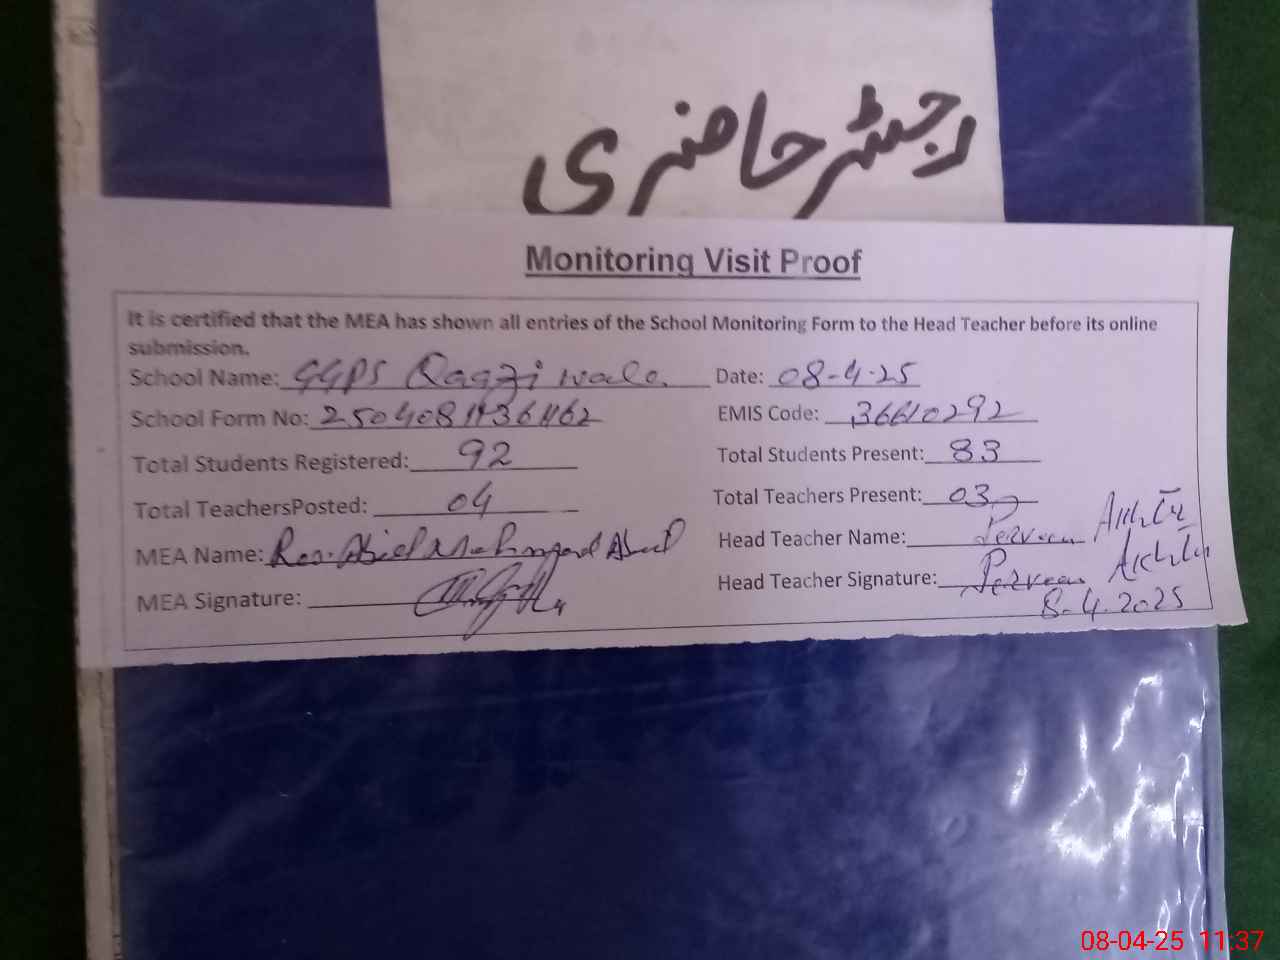 رجسٹر حاضری
Monitoring Visit Proof
It is certified that the MEA has shown all entries of the School Monitoring Form to the Head Teacher before its online
submission.
School Name: GGPS Qaqzi wala Date: 08-4-25
School Form No: EMIS Code: 36610292
Total Students Registered: 92 Total Students Present: 83
Total TeachersPosted: 04 Total Teachers Present: 03
MEA Name: Head Teacher Name: Perveen Akhtar
MEA Signature: Head Teacher Signature: Perveen Akhtar
8-4-2025
08-04-25 11:37